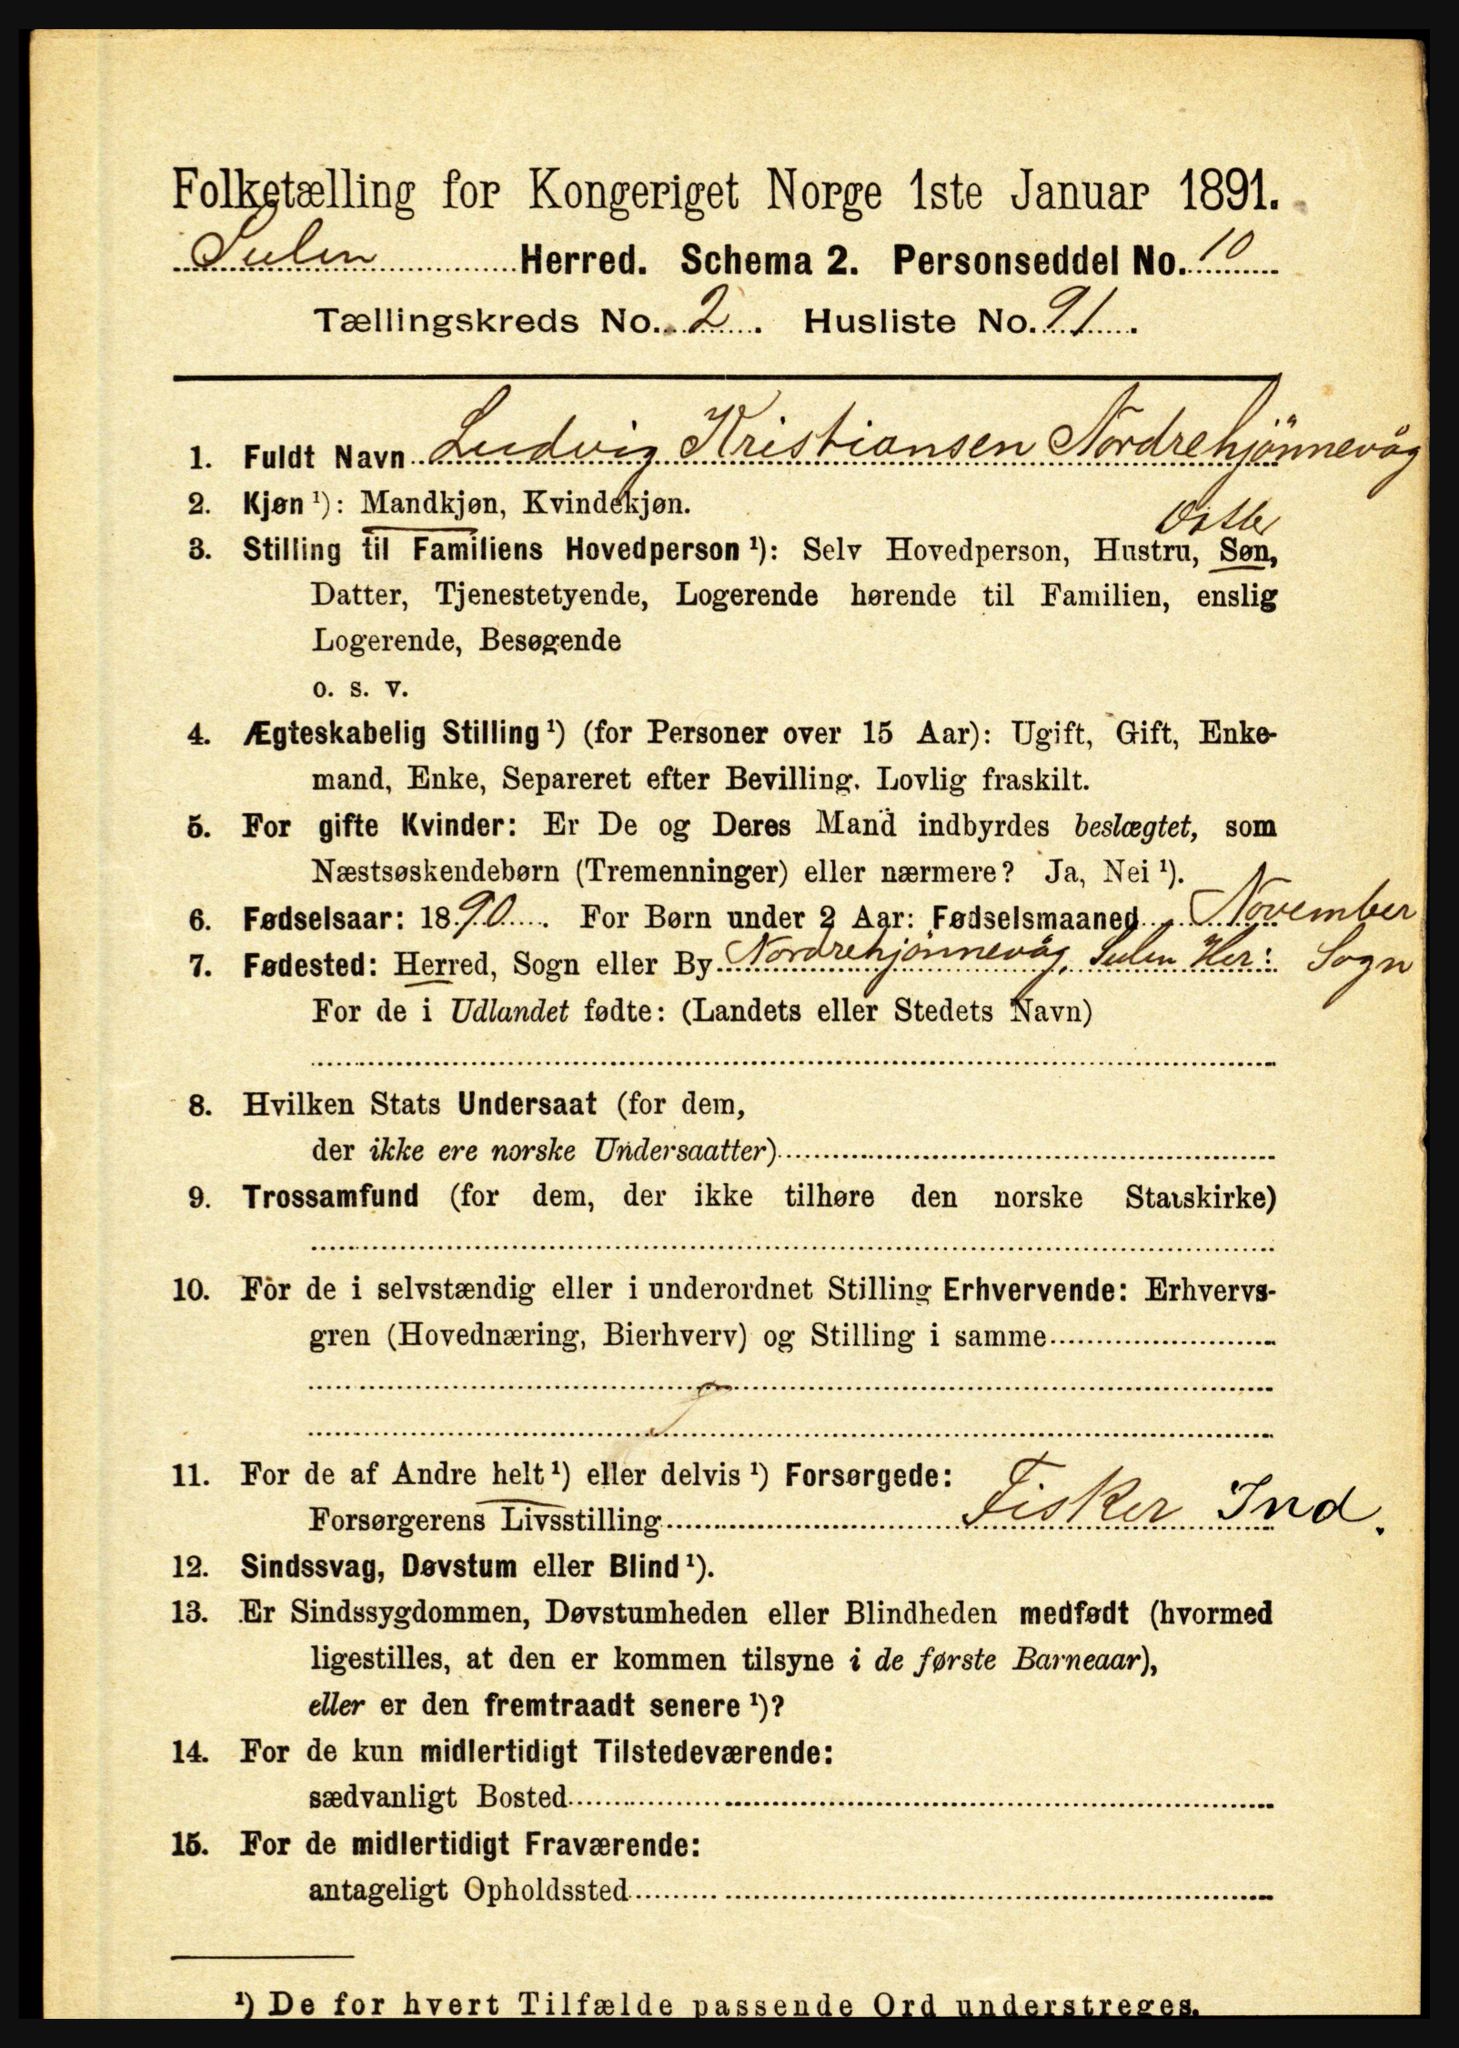 Folketælling for Kongeriget Norge 1ste Januar 1891.
Sulen Herred. Schema 2. Personseddel No. 10
Tællingskreds No. 2. Husliste No. 91.
1. Fuldt Navn Ludvig Kristiansen Nordrehjönnevåg
2. Kjøn ¹): Mandkjøn, Kvindekjøn.
3. Stilling til Familiens Hovedperson ¹): Selv Hovedperson, Hustru, Søn,
Datter, Tjenestetyende, Logerende hørende til Familien, enslig
Logerende, Besøgende
o. s. v.
4. Ægteskabelig Stilling ¹) (for Personer over 15 Aar): Ugift, Gift, Enke-
mand, Enke, Separeret efter Bevilling. Lovlig fraskilt.
5. For gifte Kvinder: Er De og Deres Mand indbyrdes beslægtet, som
Næstsøskendebørn (Tremenninger) eller nærmere? Ja, Nei ¹).
6. Fødselsaar: 1890. For Børn under 2 Aar: Fødselsmaaned November
7. Fødested: Herred, Sogn eller By Nordrehjönnevåg, Sulen Her: Sogn
For de i Udlandet fødte: (Landets eller Stedets Navn)
8. Hvilken Stats Undersaat (for dem,
der ikke ere norske Undersaatter)
9. Trossamfund (for dem, der ikke tilhøre den norske Statskirke)
10. For de i selvstændig eller i underordnet Stilling Erhvervende: Erhvervs-
gren (Hovednæring, Bierhverv) og Stilling i samme
11. For de af Andre helt ¹) eller delvis ¹) Forsørgede:
Forsørgerens Livsstilling Fisker Ind.
12. Sindssvag, Døvstum eller Blind ¹).
13. Er Sindssygdommen, Døvstumheden eller Blindheden medfødt (hvormed
ligestilles, at den er kommen tilsyne i de første Barneaar),
eller er den fremtraadt senere ¹)?
14. For de kun midlertidigt Tilstedeværende:
sædvanligt Bosted
15. For de midlertidigt Fraværende:
antageligt Opholdssted
¹) De for hvert Tilfælde passende Ord understreges.